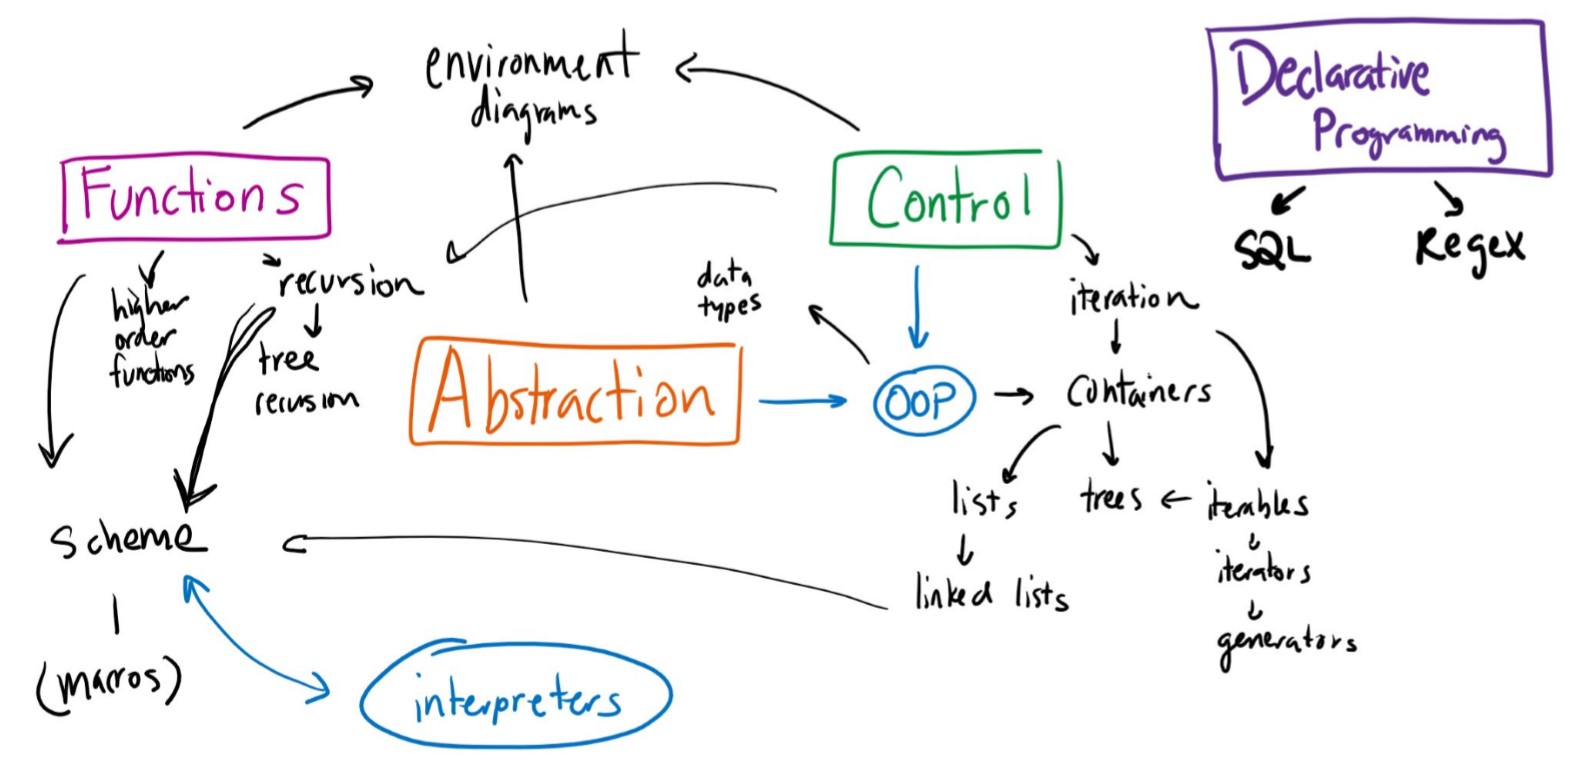 environment
diagrams
Declarative
Programming
Functions
Control
SQL
Regex
higher
order
functions
recursion
tree
recursion
data
types
iteration
Abstraction
OOP
Containers
lists
trees
iterables
linked lists
iterators
generators
Scheme
(macros)
interpreters